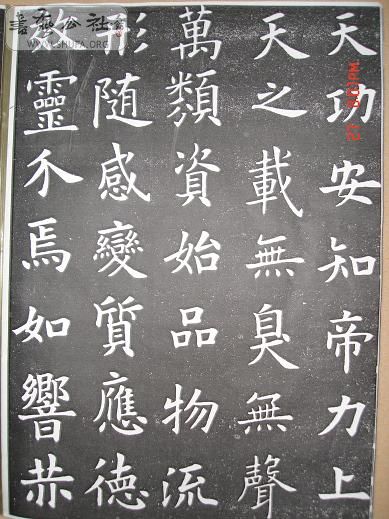 天功安知帝力上
天之載無臭無聲
萬類資始品物流
形随感變質應德
效靈介焉如響赫
書藝公社
SHUFA.ORG